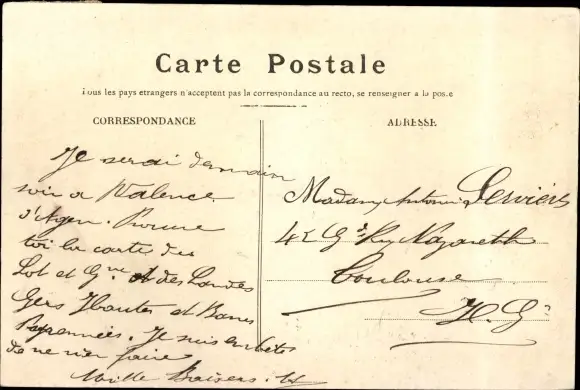 Carte Postale
Tous les pays etrangers n'acceptent pas la correspondance au recto, se renseigner a la poste
CORRESPONDANCE
Je serai demain
soir a Valence
d'Agen. 
toi la carte du
Lot et Gne et des Landes
Gers Hautes et Basses
Pyrennées. Je suis embêtée
de ne rien faire
Mille Baisers.
ADRESSE
Madame Antonin
42 Gde Rue Nazareth
Toulouse
H. G.